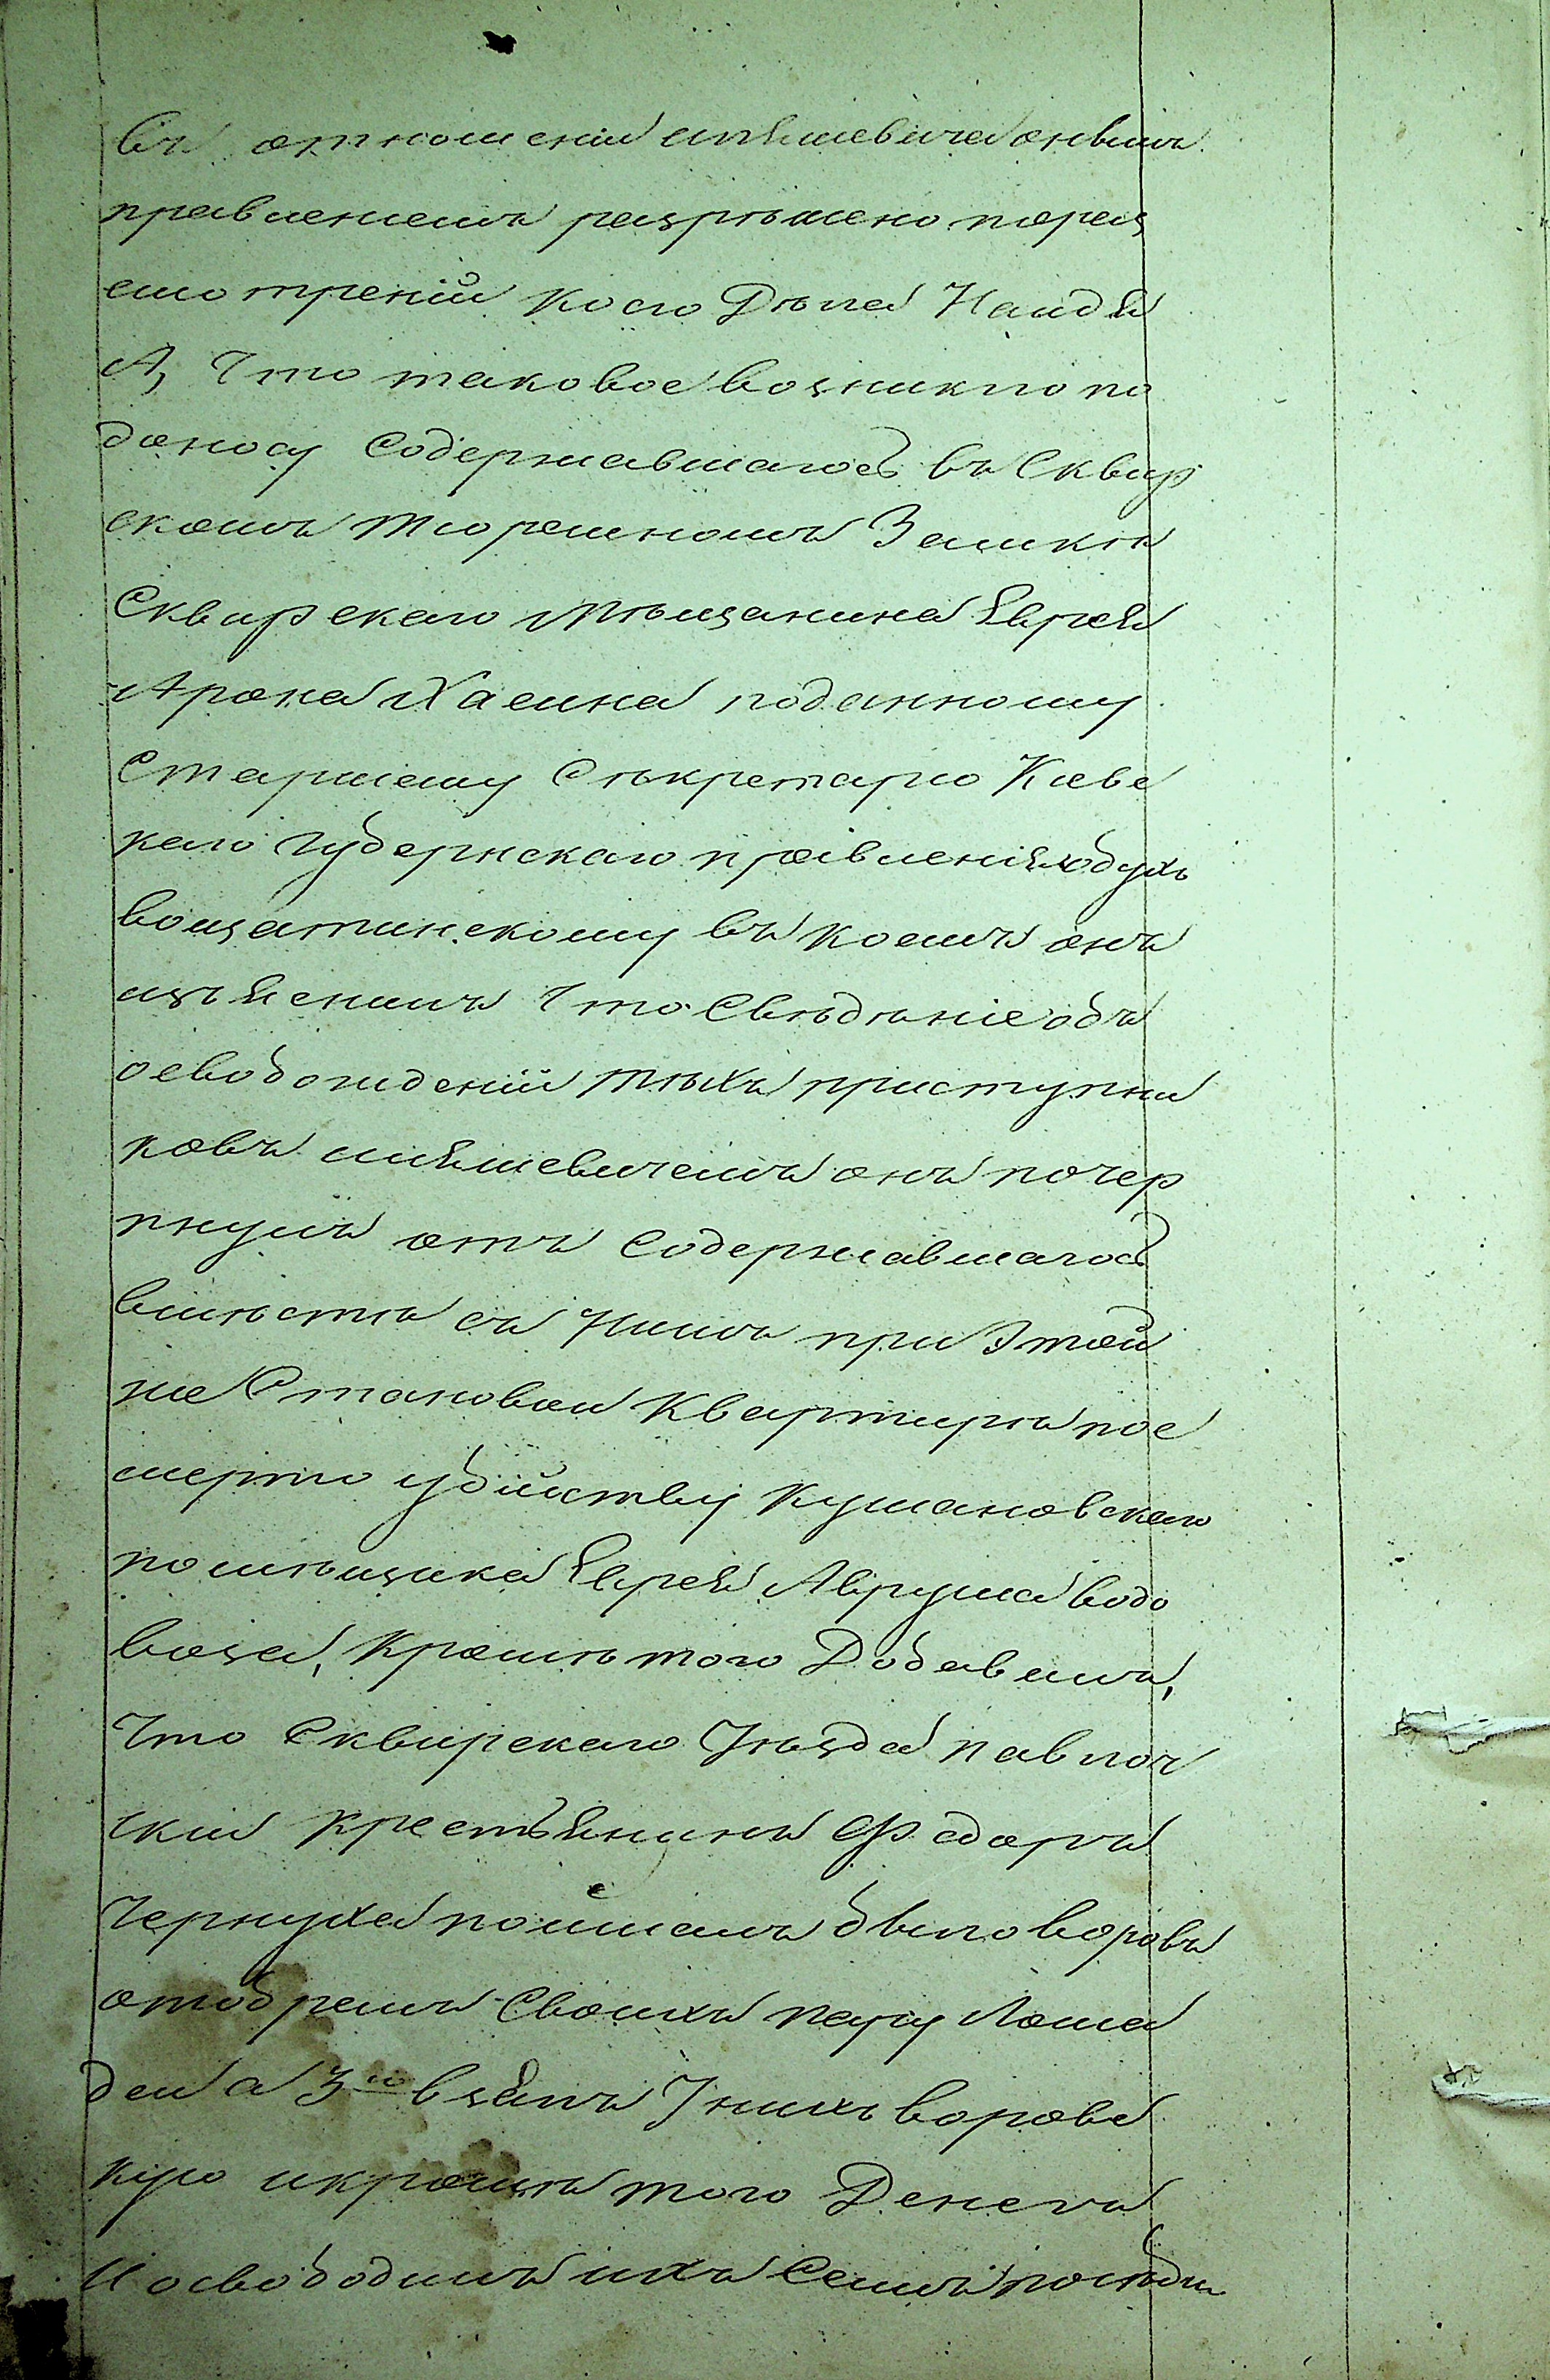 въ отношеніи ильяшевича онымъ
правленіемъ разрѣшено, поразъ
смотреніи коего Дѣла Найдя
А, Что таковое возникло по
доносу Содержавшагось въ Сквир
скомъ тюремномъ Замкѣ
Сквирскаго мѣщанина Еврея
Арона Хаسина поданному
Старшему Сѣкретарю Киевс
каго губернскаго правленія
въ коемъ онъ
изъяснилъ Что Свѣдѣніе объ
освобожденіи тѣхъ приступни
ковъ ильяшевичемъ онъ почер
пнулъ отъ Содержавшагось
вмѣстѣ съ Нимъ при Этой
же Становои Квартирѣ пос
мертоубійству Кумановскаго
помѣщика Еврея Аврума водо
воза, Кромѣ того Добавилъ,
Что Сквирскаго Уѣзда павлоч
скій крестьянинъ Федоръ
Чернуха поималъ было воровъ
отобралъ Своихъ пару Лоша
деи а 3ю взялъ У нихъ ворове
кую икромѣ того Денегъ
И освободилъ ихъ Семъ